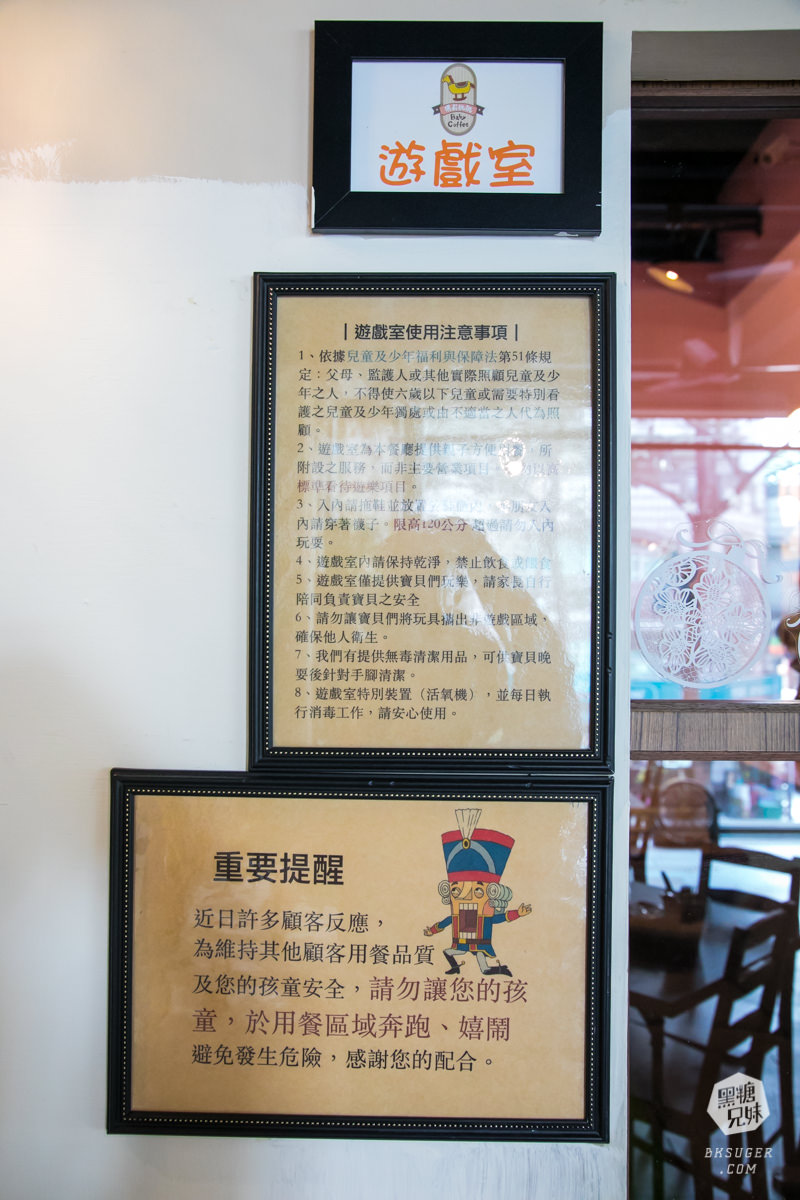 Baby
Coffee
遊戲室
遊戲室使用注意事項
1、依據兒童及少年福利與保障法第51條規
定：父母、監護人或其他實際照顧兒童及少
年之人，不得使六歲以下兒童或需要特別看
護之兒童及少年獨處或由不適當之人代為照
顧。
2、遊戲室為本餐廳提供親子方便 所
附設之服務，而非主要營業項目。 勿以高
標準看待遊樂項目。
3、入內請拖鞋並放置 入
內請穿著襪子。限高120公分 超過請勿入內
玩耍。
4、遊戲室內請保持乾淨，禁止飲食或餵食
5、遊戲室僅提供寶貝們玩樂，請家長自行
陪同負責寶貝之安全
6、請勿讓寶貝們將玩具攜出非遊戲區域、
確保他人衛生。
7、我們有提供無毒清潔用品，可供寶貝晚
要後針對手腳清潔。
8、遊戲室特別裝置（活氧機），並每日執
行消毒工作，請安心使用。
重要提醒
近日許多顧客反應，
為維持其他顧客用餐品質
及您的孩童安全，請勿讓您的孩
童，於用餐區域奔跑、嬉鬧
避免發生危險，感謝您的配合。
黑糖
兄妹
BKSUGER
.COM